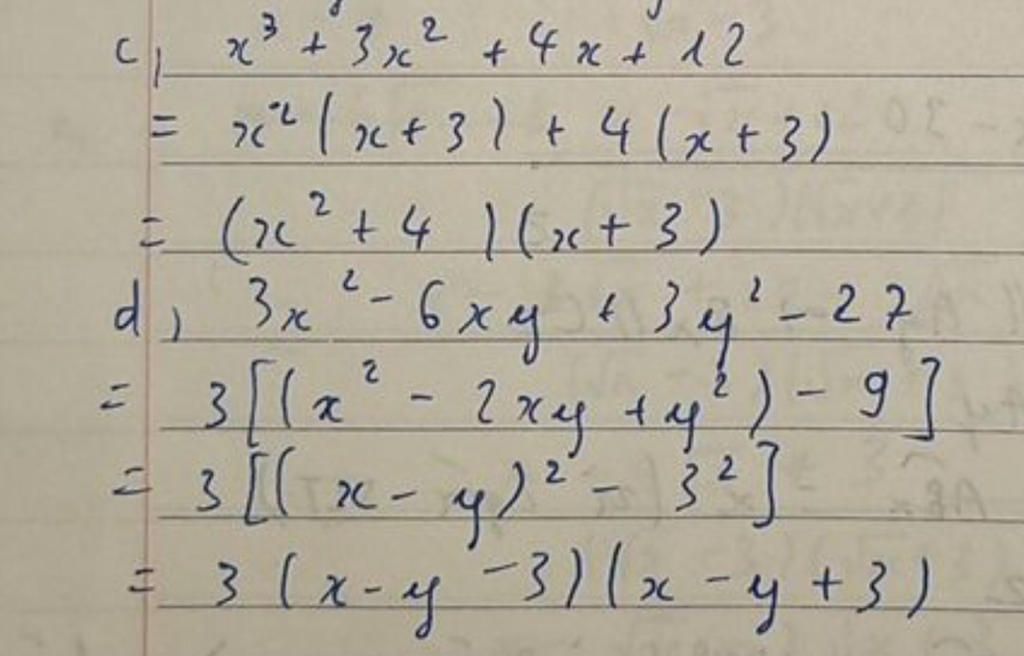 c, x³ + 3x² + 4x + 12
= x²(x+3) + 4(x+3)
= (x² + 4)(x + 3)
d, 3x² - 6xy + 3y² - 27
= 3[(x² - 2xy + y²) - 9]
= 3[(x - y)² - 3²]
= 3(x - y - 3)(x - y + 3)